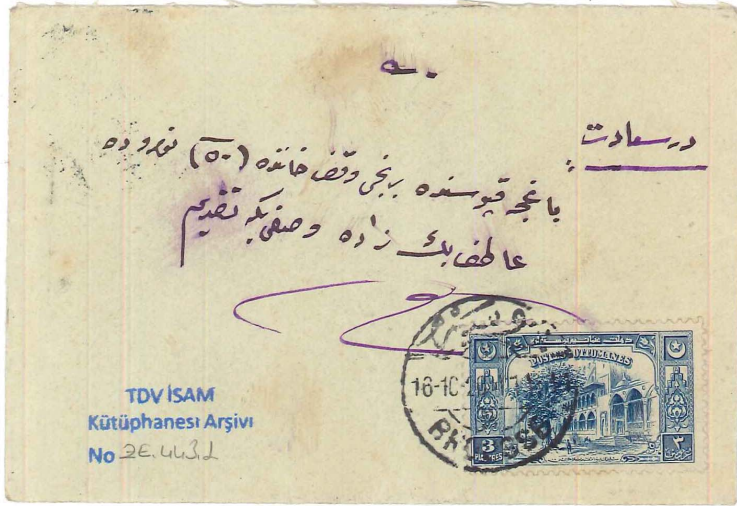 در سعادت:
باغچه قپوسنده برنجی وقف خاننده (٥٠) نوروده
عاطف بك زاده وصفی بكه تقدیم
POSTES OTTOMANES
16-10-20
BROUSSE
3
PIASTRES
٣
TDV İSAM
Kütüphanesi Arşivi
No 2E.443.2